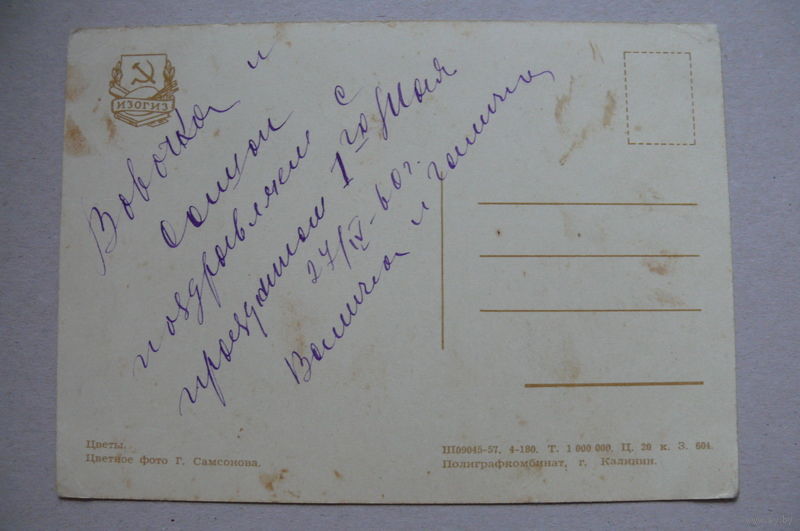 ИЗОГИЗ
Вовочка и
Саша
поздравляем с
праздником 1го Мая
27/IV-60г.
Валичка и Галичка
Цветы.
Цветное фото Г. Самсонова.
Ш09045-57. 4-180. Т. 1 000 000. Ц. 20 к. З. 604.
Полиграфкомбинат, г. Калинин.